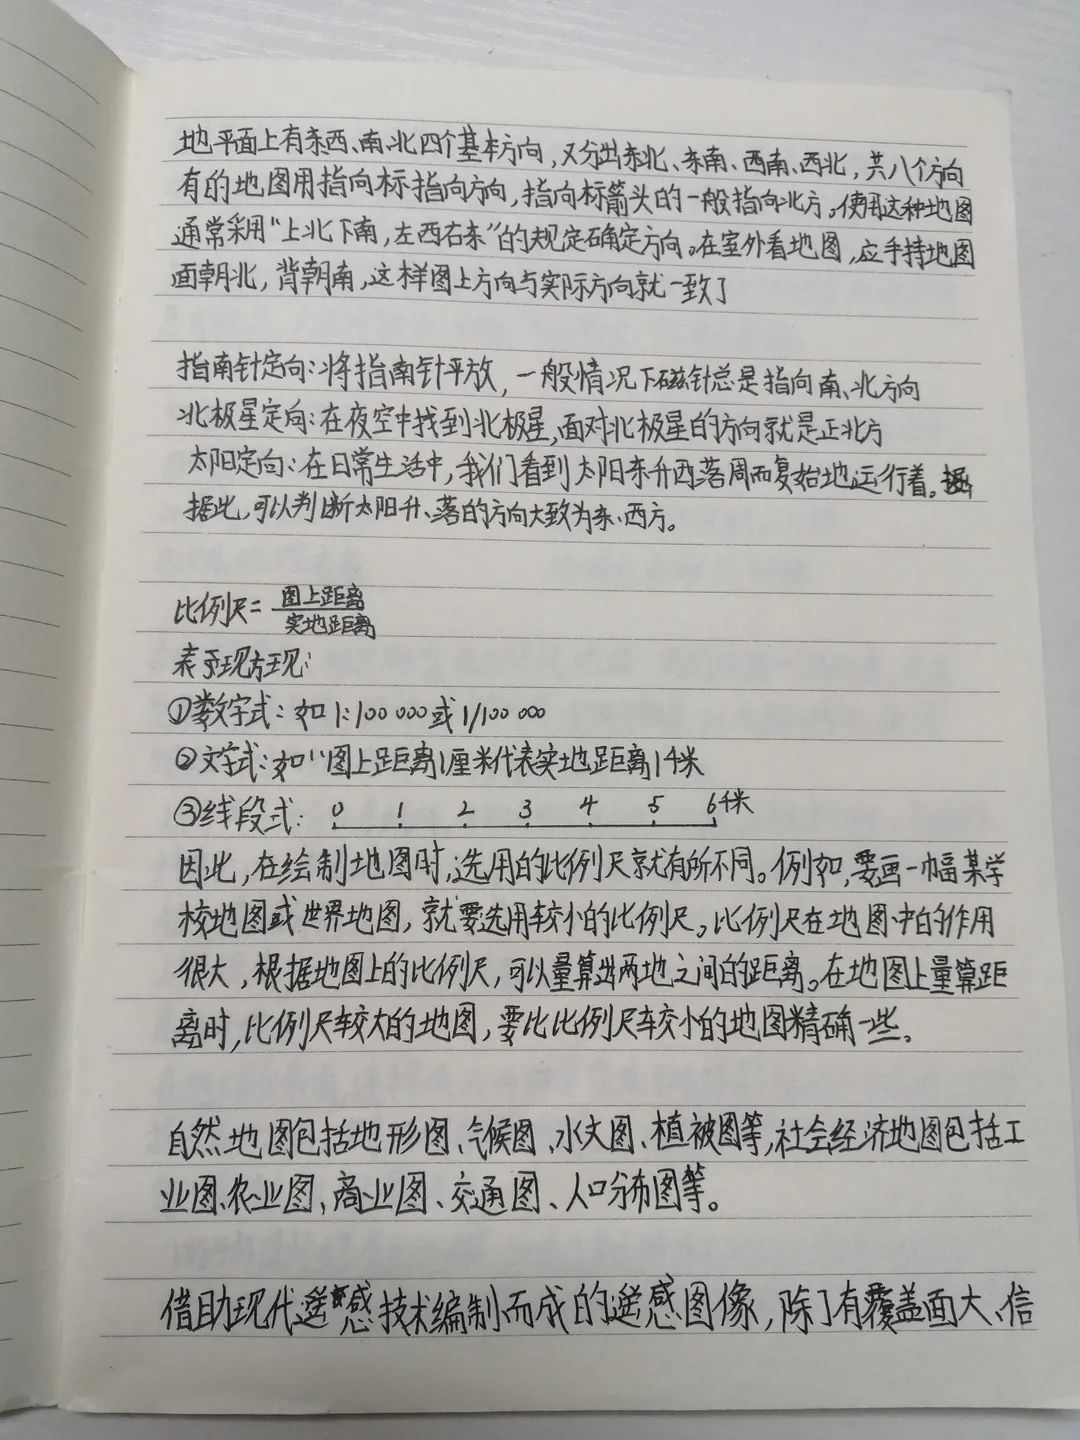 地平面上有东西、南、北四个基本方向，又分出东北、东南、西南、西北，共八个方向
有的地图用指向标指向方向，指向标箭头的一般指向北方。使用这种地图
通常采用“上北下南，左西右东”的规定确定方向。在室外看地图，应手持地图
面朝北，背朝南，这样图上方向与实际方向就一致了
指南针定向：将指南针平放，一般情况下磁针总是指向南、北方向
北极星定向：在夜空中找到北极星，面对北极星的方向就是正北方
太阳定向：在日常生活中，我们看到太阳东升西落周而复始地运行着。
据此，可以判断太阳升、落的方向大致为东、西方。
比例尺=图上距离/实地距离
表示现方现：
①数字式：如1:100 000或1/100 000
②文字式：如“图上距离1厘米代表实地距离1千米
③线段式： 0 1 2 3 4 5 6千米
因此，在绘制地图时，选用的比例尺就有所不同。例如，要画一幅某学
校地图或世界地图，就要选用较小的比例尺。比例尺在地图中的作用
很大，根据地图上的比例尺，可以量算出两地之间的距离。在地图上量算距
离时，比例尺较大的地图，要比比例尺较小的地图精确一些。
自然地图包括地形图、气候图、水文图、植被图等，社会经济地图包括工
业图、农业图、商业图、交通图、人口分布图等。
借助现代遥感技术编制而成的遥感图像，除了有覆盖面大、信